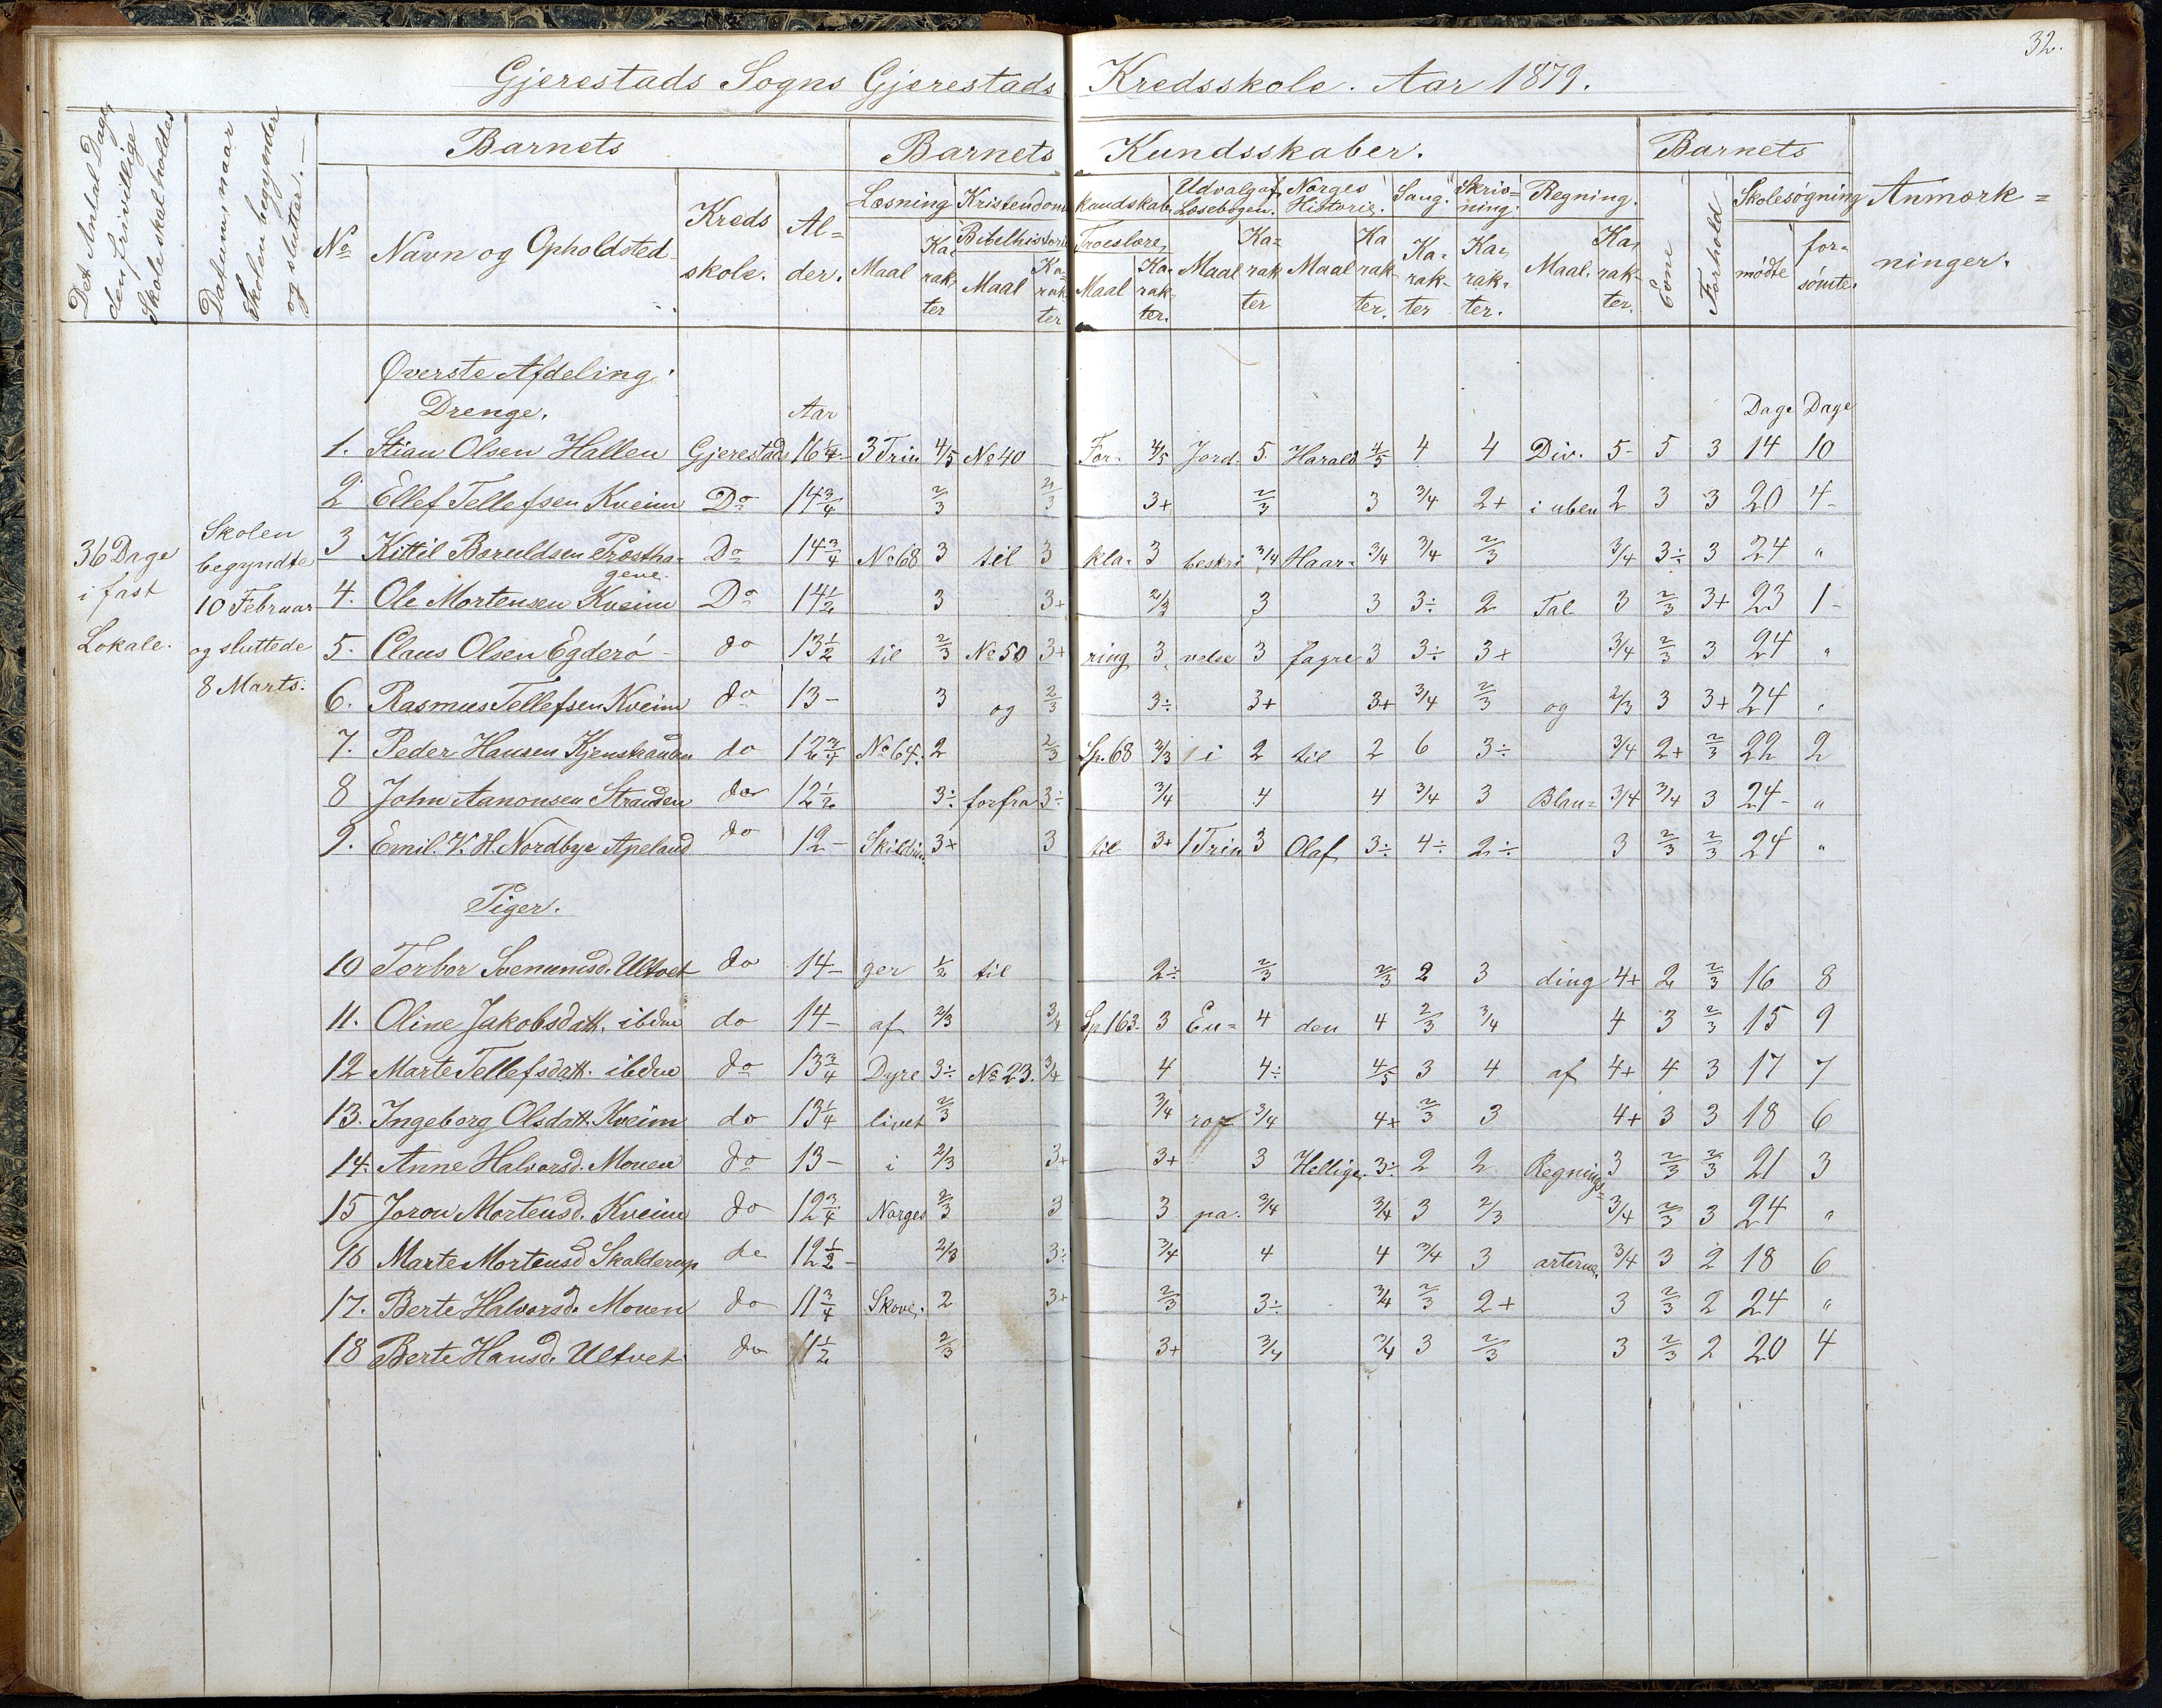 32.
Gjerestads Sogns Gjerestads Kredsskole. Aar 1879.
Det Antal Dage den frivillige Skole skal holdes
Datum, naar Skolen begynder og slutter.
Barnets
Barnets Kundsskaber.
Barnets
Anmærkninger.
No Navn og Opholdsted Kredsskole. Alder.
Læsning Kristendomskundskab Udvalg af Læsebogen. Norges Historie. Sang. Skrivning. Regning. Evne Forhold Skolesøgning
Maal Karakter Bibelhistorie Maal Karakter Troeslære Maal Karakter. Maal Karakter Maal Karakter. Karakter Karakter. Maal. Karakter. mødte forsømte.
36 Dage i fast Lokale.
Skolen begyndte 10 Februar og sluttede 8 Marts.
Øverste Afdeling.
Drenge. Aar Dage Dage
1. Stian Olsen Hallen Gjerestads 16 1/4 3 Trin 4/5 No 40 For- 4/5 Jord- 5 Harald 4/5 4 4 Div. 5- 5 3 14 10
2 Ellef Tellefsen Kveim Do 14 3/4 2/3 2/3 3+ 2/3 3 3/4 2+ i uben 2 3 3 20 4-
3 Kittil Baruldsen Præsthagene. Do 14 3/4 No 68 3 til 3 kla- 3 beskri 3/4 Haar- 3/4 3/4 2/3 3/4 3÷ 3 24 "
4. Ole Mortensen Kveim Do 14 1/2 3 3+ 2/3 3 3 3÷ 2 Tal 3 2/3 3+ 23 1-
5. Claus Olsen Egderø do 13 1/2 til 2/3 No 50 3+ ring 3 velse 3 fagre 3 3÷ 3+ 3/4 2/3 3 24 "
6. Rasmus Tellefsen Kveim do 13- 3 og 2/3 3÷ 3+ 3+ 3/4 2/3 og 2/3 3 3+ 24 "
7. Peder Hansen do 12 3/4 No 64. 2 2/3 Sp. 68 2/3 i 2 til 2 6 3÷ 3/4 2+ 2/3 22 2
8 John Aanonsen Stranden do 12 1/2 3÷ forfra 3÷ 3/4 4 4 3/4 3 Blan- 3/4 3/4 3 24- "
9. Emil. K. H. Nordbye Apeland do 12- Skildrin 3+ 3 til 3+ 1 Trin 3 Olaf 3÷ 4÷ 2÷ 3 2/3 2/3 24 "
Piger.
10 Torbor Svenumsd. Ultvet do 14- ger 1/2 til 2÷ 2/3 2/3 2 3 ding 4+ 2 2/3 16 8
11. Oline Jakobsdatt. ibdm do 14- af 2/3 3/4 Sp 163. 3 Eu- 4 den 4 2/3 3/4 4 3 2/3 15 9
12 Marte Tellefsdatt. ibdm do 13 3/4 Dyre 3÷ No 23. 3/4 4 4÷ 4/5 3 4 af 4+ 4 3 17 7
13. Ingeborg Olsdatt. Kveim do 13 1/4 livet 2/3 3/4 ro 3/4 4+ 2/3 3 4+ 3 3 18 6
14. Anne Halvorsd. Mouen do 13- i 2/3 3+ 3+ 3 Hellige. 3÷ 2 2 Regnings- 3 2/3 2/3 21 3
15 Joron Mortensd. Kveim do 12 3/4 Norges 2/3 3 3 pa. 3/4 3/4 3 2/3 3/4 2/3 3 24 "
16 Marte Mortensd Skalderup do 12 1/2- 2/3 3÷ 3/4 4 4 3/4 3 arterne. 3/4 3 2 18 6
17. Berte Halvorsd. Mouen do 11 3/4 Skove. 2 3+ 2/3 3÷ 3/4 2/3 2+ 3 2/3 2 24 "
18 Berte Hansd. Ultvet do 11 1/2 2/3 3+ 3/4 3/4 3 2/3 3 2/3 2 20 4